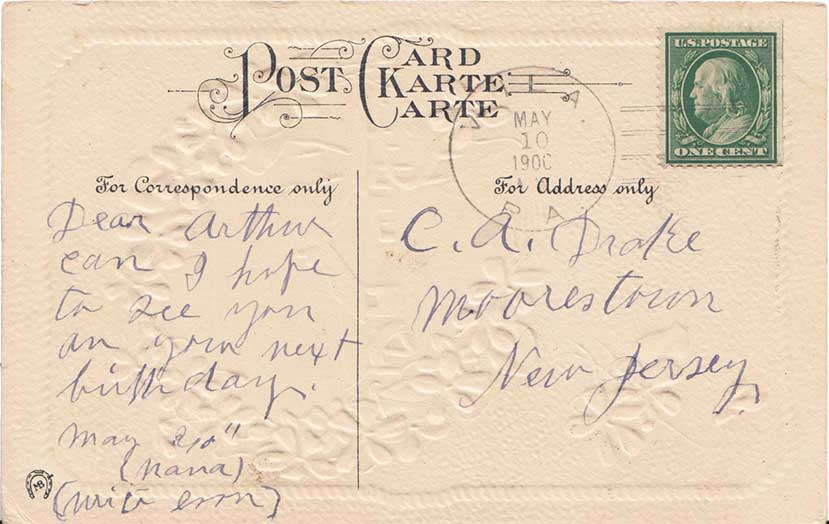 POST CARD
KARTE
CARTE
U.S. POSTAGE
ONE CENT
MAY
10
PA
For Correspondence only
For Address only
Dear Arthur
can I hope
to see you
on your next
birthday.
May
(Nana)
(write
C. A. Drake
Moorestown
New Jersey
MB